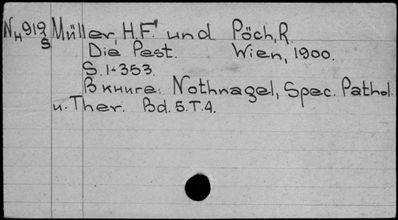 Nн919 Müller, H.F. und Pöch, R.
S
Die Pest. Wien, 1900.
S. 1-353.
В книге: Nothnagel, Spec. Pathol.
u. Ther. Bd. 5. T. 4.